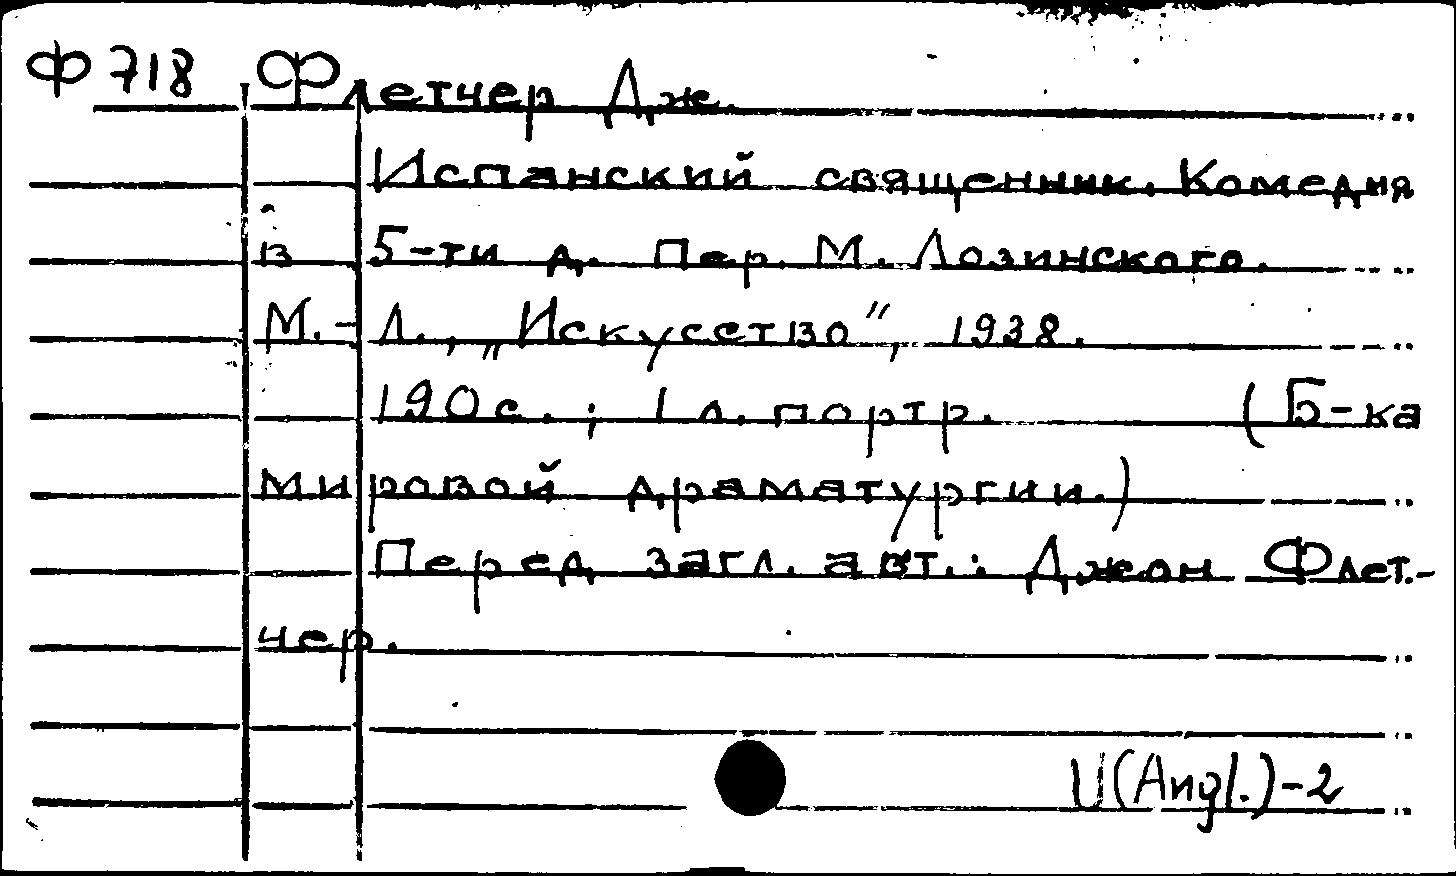 Ф 718 Флетчер Дж.
Испанский священник. Комедия
в 5-ти д. Пер. М. Лозинского.
М.-Л., „Искусство", 1938.
190 с.; 1 л. портр. (Б-ка
мировой драматургии.)
Перед загл. авт.: Джон Флет.-
чер.
U(Angl.)-2